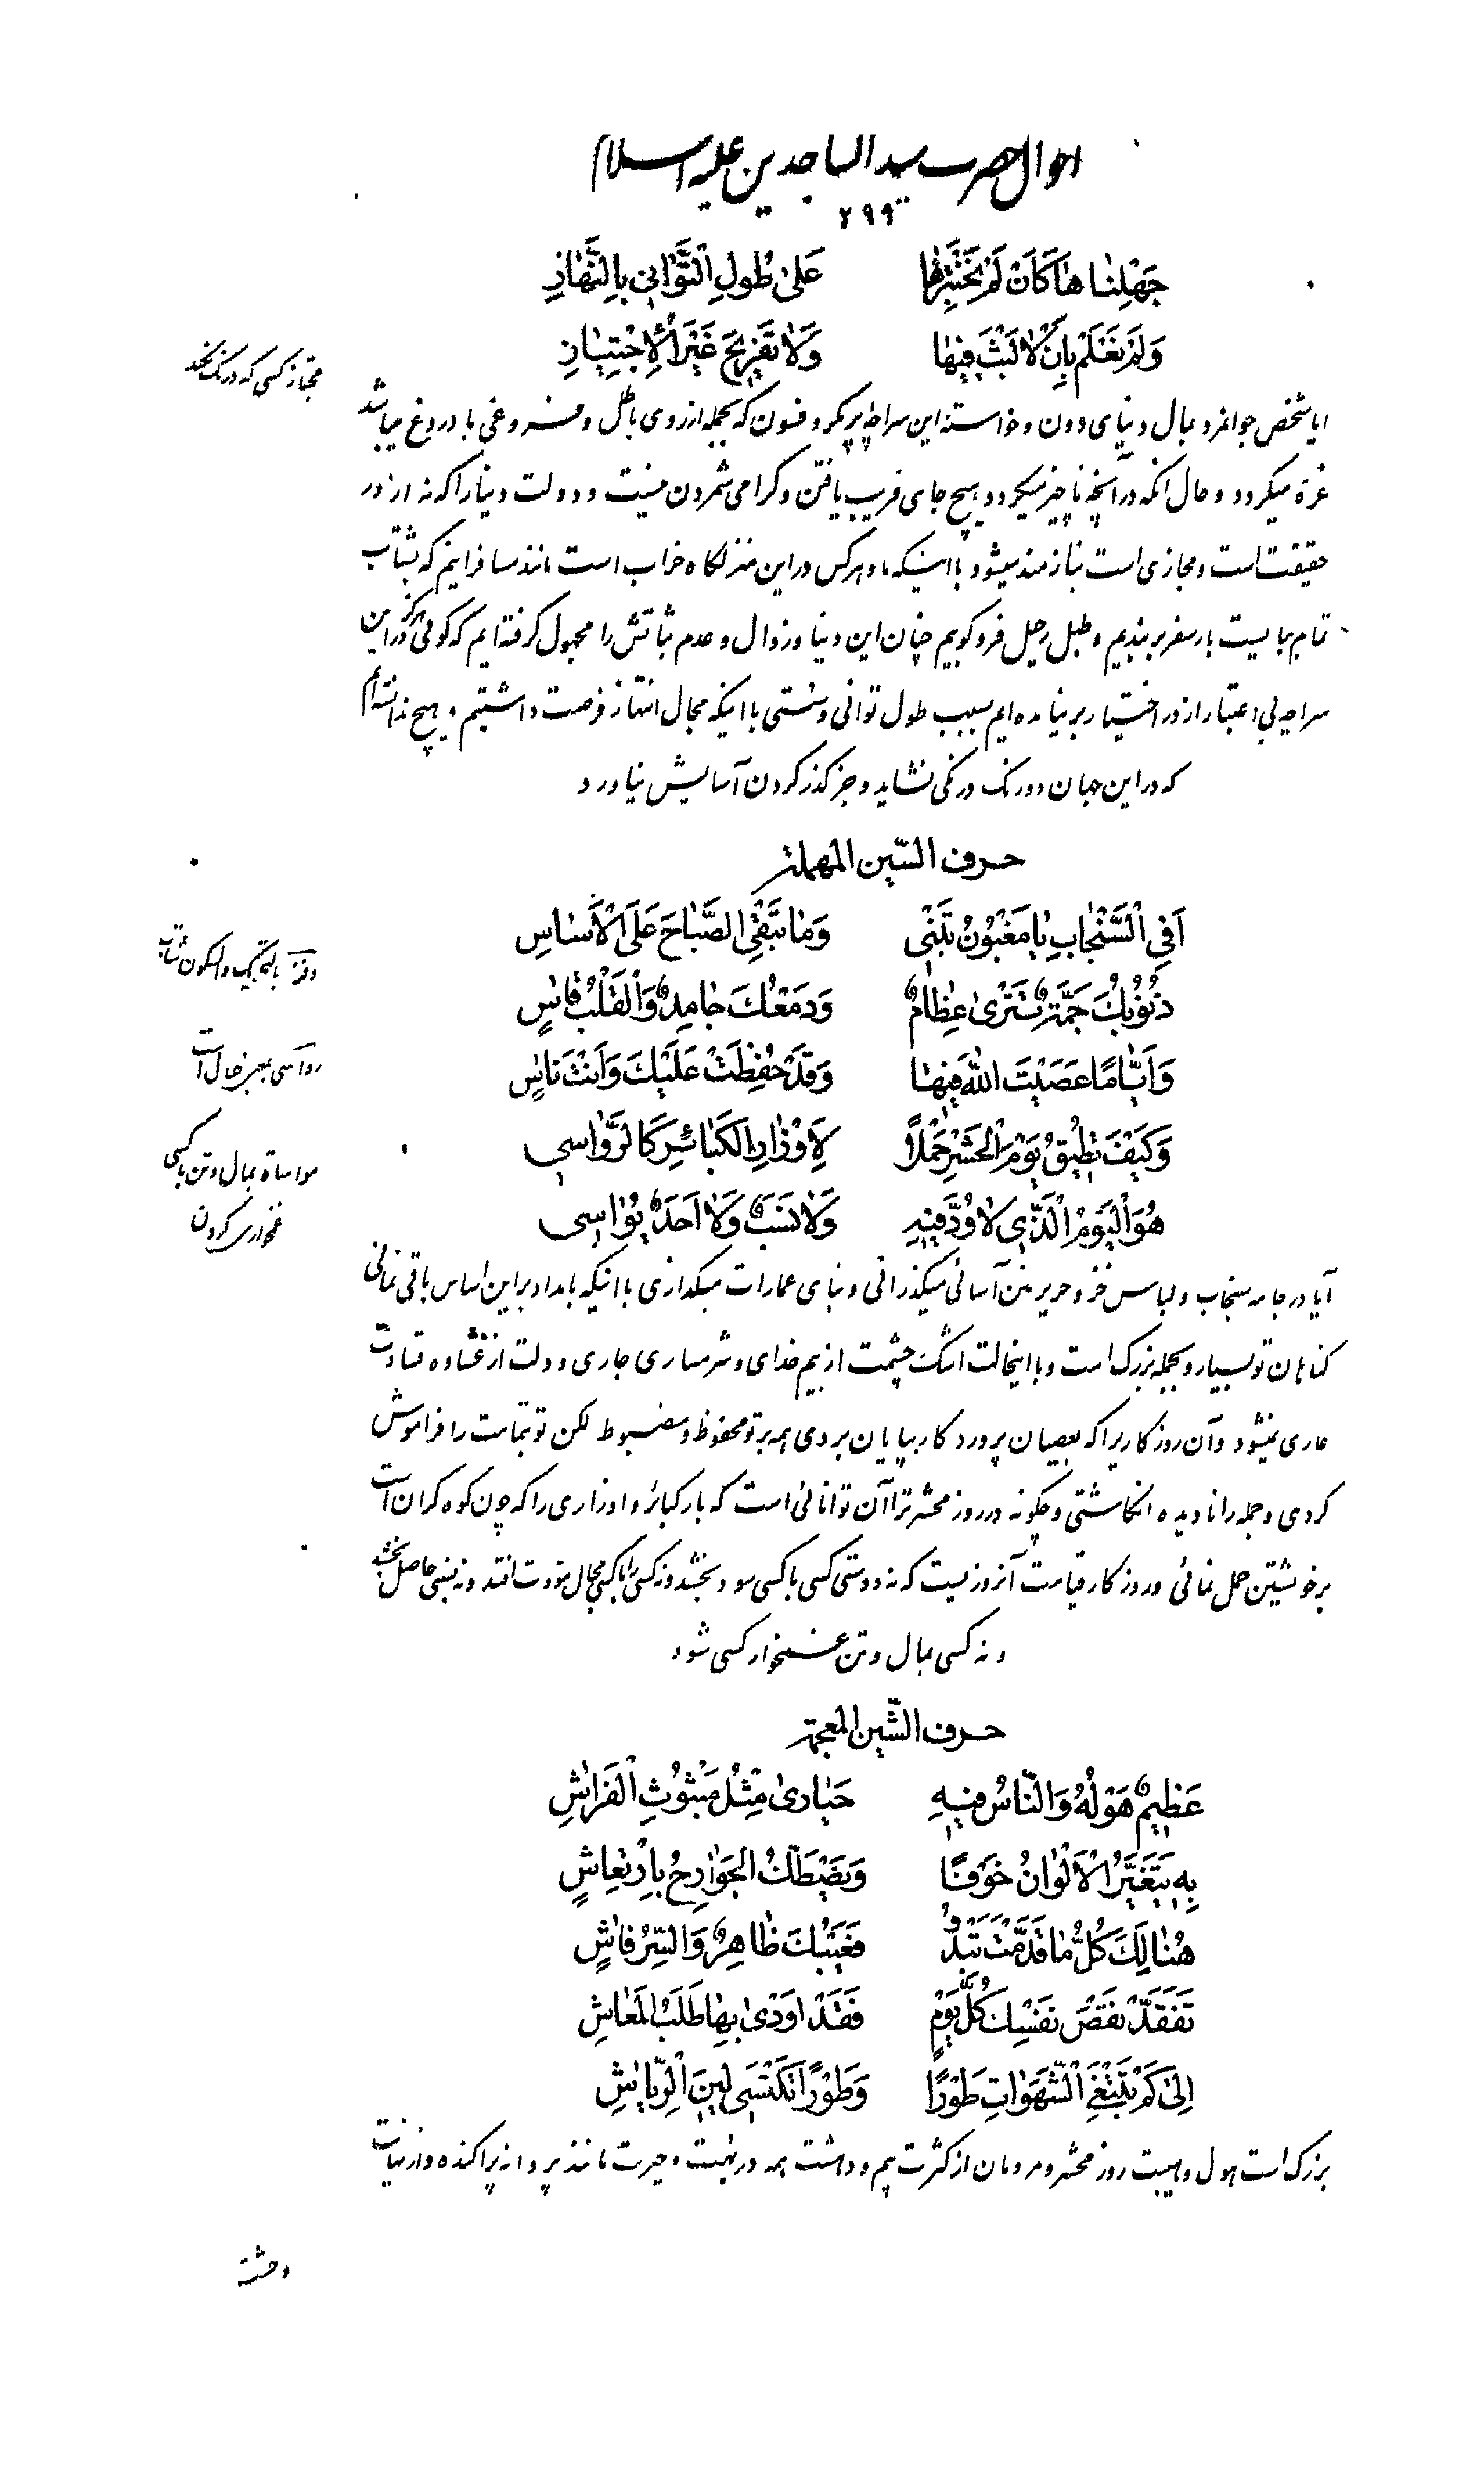 احوال حضرت سید الساجدین علیه السلام
۲۹۹
جَهِلْنٰاهٰا كَاَنْ لَمْ نَخْتَبِرْهٰا عَلىٰ طُولِ التَّوٰانی بِالنَّهٰازِ
وَلَمْ نَعْلَمْ بِاَنْ لٰا لَبْثَ فیهٰا وَلٰا تَعْریجَ غَیْرَ الْاِجْتِیٰازِ
مجتاز کسی که درنک نکند
ایا شخص جوانمرد بمال دنیای دون و خواسته این سراچه پر مکر و فسون که بجمله از روی باطل و فروغی با دروغ میباشد
غره میکردد و حال انکه در آنچه ناچیز میکردد هیچ جای فریب یافتن و کرامی شمردن نیست و دولت دنیا را که نه از در
حقیقت است و مجازی است نیازمند میشود با اینکه ما و هرکس در این منزلکاه خراب است مانند مسافرانیم که بشتاب
تمام بایست بار سفر بربندیم و طبل رحیل فرو کوبیم چنان این دنیا و زوال و عدم ثباتش را مجهول کرفته ایم که کوئی هرکز در این
سراچه بی اعتبار از در اختیار برنیامده ایم بسبب طول توانی و سستی با اینکه مجال انتهاز فرصت داشتیم و هیچ ندانسته ایم
که در این جهان دو رنک درنکی نشاید و جز کذر کردن آسایش نیاورد
حرف السّین المهملة
اَفِی السَّنْجٰابِ یٰا مَغْبُونُ تَبْنی وَمٰا تَبْقَی الصَّبٰاحَ عَلَی الْاَسٰاسِ
ذُنُوبُكَ جَمَّةٌ تَتْرىٰ عِظٰامٌ وَدَمْعُكَ جٰامِدٌ وَالْقَلْبُ قٰاسٍ
وَاَیّٰامًا عَصَیْتَ اللّٰهَ فیهٰا وَقَدْ حُفِظَتْ عَلَیْكَ وَاَنْتَ نٰاسٍ
رواسی بمعنی جبال است
وَكَیْفَ تُطیقُ یَوْمَ الْحَشْرِ حَمْلًا لِاَوْزٰارِ الْكَبٰائِرِ كَالرَّوٰاسی
مواساة بمال و تن با کسی
هُوَ الْیَوْمُ الَّذی لٰا وُدَّ فیهِ وَلٰا نَسَبٌ وَلٰا اَحَدٌ یُوٰاسی
غمخواری کردن
آیا در جامه سنجاب و لباس خز و حریر بتن آسائی میکذرانی و بنای عمارات میکذاری با اینکه بامداد بر این اساس باقی نمانی
کناهان تو بسیار و بجمله بزرک است و با اینحالت اشک چشمت از بیم خدای و شرمساری جاری و دلت از غشاوه قساوت
عاری نمیشود و آن روزکاریرا که بعصیان پروردکار بپایان بردی همه بر تو محفوظ و مضبوط لکن تو بتمامت را فراموش
کردی و جمله را نادیده انکاشتی و چکونه در روز محشر ترا آن توانائی است که بار کبائر و اوزاری را که چون کوه کران است
بر خویشتن حمل نمائی و روزکار قیامت آنروزیست که نه دوستی کسی با کسی سود بخشد و نه کسی را با کسی مجال مودت افتد و نه نسبی حاصل بخشد
و نه کسی بمال و تن غمخوار کسی شود
حرف الشّین المعجمة
عَظیمٌ هَوْلُهُ وَالنّٰاسُ فیهِ حَیٰارىٰ مِثْلُ مَبْثُوثِ الْفَرٰاشِ
بِهِ یَتَغَیَّرُ الْاَلْوٰانُ خَوْفًا وَتَصْطَكُّ الْجَوٰارِحُ بِارْتِعٰاشٍ
هُنٰالِكَ كُلُّ مٰا قَدَّمْتَ تَبْدُو فَعَیْبُكَ ظٰاهِرٌ وَالسِّرُّ فٰاشٍ
تَفَقَّدْ نَقْصَ نَفْسِكَ كُلَّ یَوْمٍ فَقَدْ اَوْدىٰ بِهٰا طَلَبُ الْمَعٰاشِ
اِلىٰ كَمْ تَبْتَغِی الشَّهَوٰاتِ طَوْرًا وَطَوْرًا تَكْتَسی لینَ الرِّیٰاشِ
بزرک است هول و هیبت روز محشر و مردمان از کثرت بیم و دهشت همه در بهت و حیرت مانند پروانه پراکنده و از نهایت
وحشت